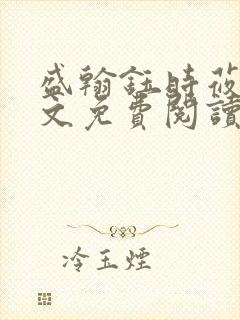 盛翰鈺時莜
文免費閱讀
冷玉煙